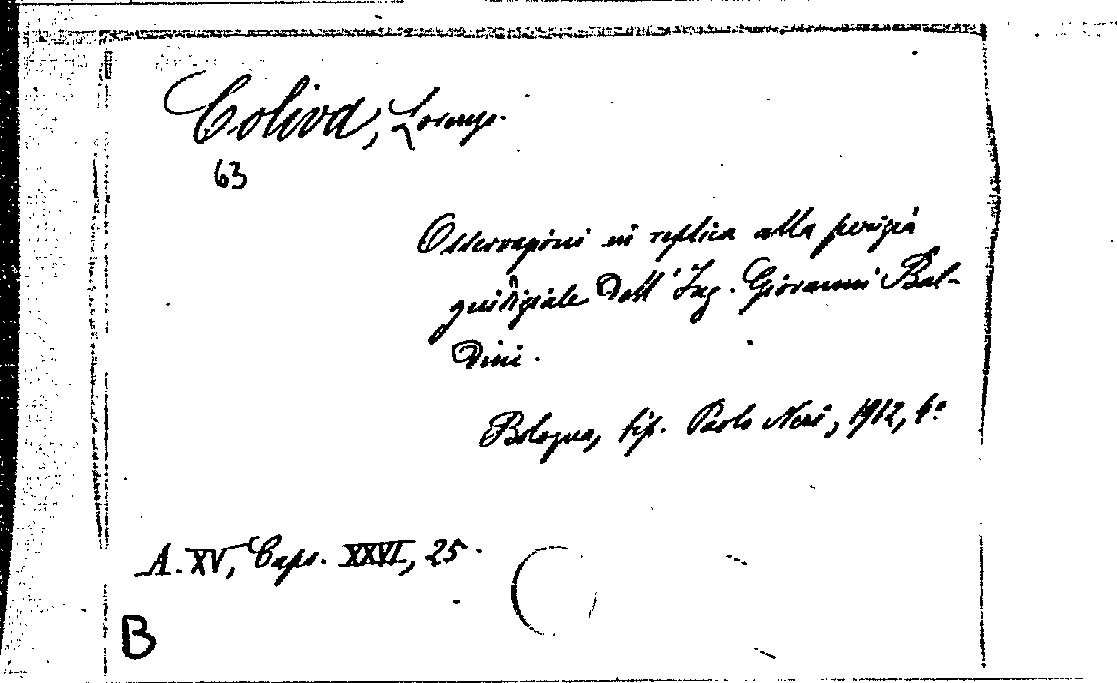 Coliva, Lorenzo.
63
Osservazioni in replica alla perizia
giudiziale dell' Ing. Giovanni Bal-
dini.
Bologna, tip. Paolo Neri, 1912, 4°
A. XV, Caps. XXVI, 25.
B